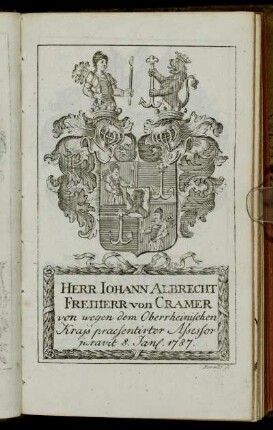 HERR IOHANN ALBRECHT
FREIHERR von CRAMER
von wegen dem Oberrheinischen
Kraiß praesentirter Assessor
juravit 8. Jan. 1787.